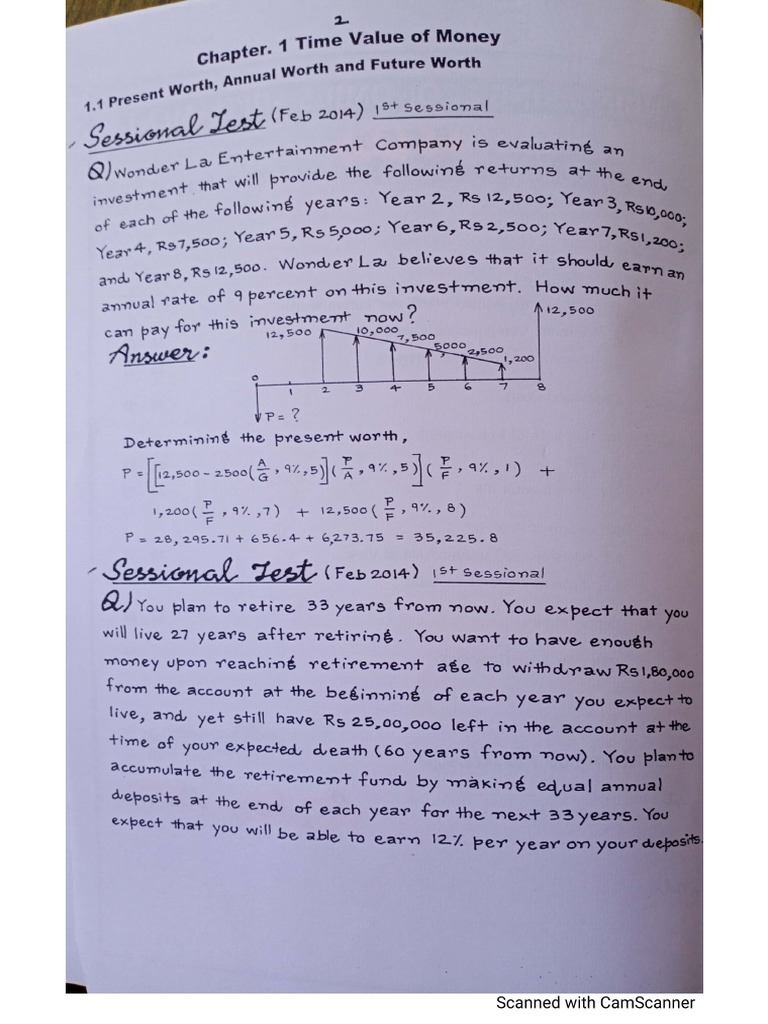 2
Chapter. 1 Time Value of Money
1.1 Present Worth, Annual Worth and Future Worth
Sessional Test (Feb 2014) 1st Sessional
Q) Wonder La Entertainment Company is evaluating an
investment that will provide the following returns at the end
of each of the following years: Year 2, Rs 12,500; Year 3, Rs10,000;
Year 4, Rs7,500; Year 5, Rs 5,000; Year 6, Rs2,500; Year 7, Rs1,200;
and Year 8, Rs 12,500. Wonder La believes that it should earn an
annual rate of 9 percent on this investment. How much it
can pay for this investment now?
Answer:
12,500 10,000 7,500 5000 2,500 1,200 12,500
0 1 2 3 4 5 6 7 8
P = ?
Determining the present worth,
P = [[12,500 - 2500(A/G, 9%, 5)](P/A, 9%, 5)](P/F, 9%, 1) +
1,200(P/F, 9%, 7) + 12,500(P/F, 9%, 8)
P = 28,295.71 + 656.4 + 6,273.75 = 35,225.8
Sessional Test (Feb 2014) 1st Sessional
Q) You plan to retire 33 years from now. You expect that you
will live 27 years after retiring. You want to have enough
money upon reaching retirement age to withdraw Rs1,80,000
from the account at the beginning of each year you expect to
live, and yet still have Rs 25,00,000 left in the account at the
time of your expected death (60 years from now). You plan to
accumulate the retirement fund by making equal annual
deposits at the end of each year for the next 33 years. You
expect that you will be able to earn 12% per year on your deposits.
Scanned with CamScanner